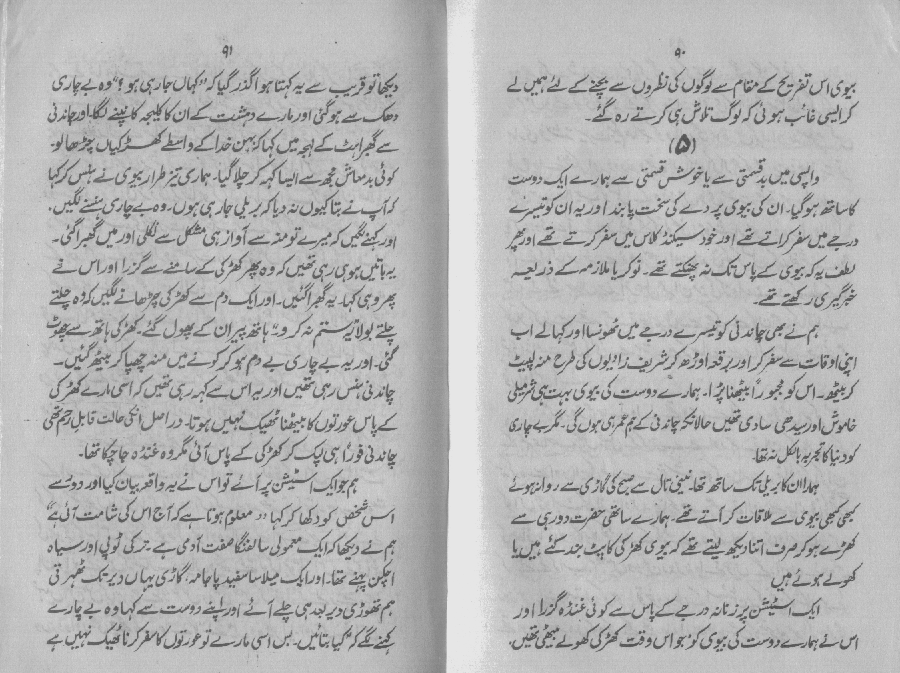 ۹۰
بیوی اس تفریح کے مقام سے لوگوں کی نظروں سے بچنے کے لئے ہمیں لے
کر ایسی غائب ہوئی کہ لوگ تلاش ہی کرتے رہ گئے۔
(۵)
واپسی میں بدقسمتی سے یا خوش قسمتی سے ہمارے ایک دوست
کا ساتھ ہو گیا۔ ان کی بیوی پردے کی سخت پابند اور یہ ان کو تیسرے
درجے میں سفر کراتے تھے اور خود سیکنڈ کلاس میں سفر کرتے تھے اور پھر
لطف یہ کہ بیوی کے پاس تک نہ پھٹکتے تھے۔ نوکر یا ملازمہ کے ذریعہ
خبرگیری رکھتے تھے۔
ہم نے بھی چاندنی کو تیسرے درجے میں ٹھونسا اور کہا لے اب
اپنی اوقات سے سفر کر اور برقعہ اوڑھ کر شریف زادیوں کی طرح منہ لپیٹ
کر بیٹھ۔ اس کو مجبوراً بیٹھنا پڑا۔ ہمارے دوست کی بیوی بہت ہی شرمیلی
خاموش اور سیدھی سادی تھیں حالانکہ چاندنی کے ہم عمر ہی ہوں گی۔ مگر بے چاری
کو دنیا کا تجربہ بالکل نہ تھا۔
ہمارا ان کا بریلی تک ساتھ تھا۔ نینی تال سے صبح کی گاڑی سے روانہ ہوئے
کبھی کبھی بیوی سے ملاقات کر آتے تھے، ہمارے ساتھی حضرت دور ہی سے
کھڑے ہو کر صرف اتنا دیکھ لیتے تھے کہ بیوی کھڑکی کا پٹ بند کئے ہیں یا
کھولے ہوئے ہیں
ایک اسٹیشن پر زنانہ درجے کے پاس سے کوئی غنڈہ گزرا اور
اس نے ہمارے دوست کی بیوی کو جو اس وقت کھڑکی کھولے بیٹھی تھیں،
۹۱
دیکھا تو قریب سے یہ کہتا ہوا گذر گیا کہ "کہاں جا رہی ہو؟" وہ بے چاری
دھک سے ہو گئی اور مارے دہشت کے ان کا کلیجہ کانپنے لگا۔ اور چاندنی
سے گھبراہٹ کے لہجہ میں کہا کہ بہن خدا کے واسطے کھڑکیاں چڑھا لو۔
کوئی بدمعاش مجھ سے ایسا کہہ کر چلا گیا۔ ہماری تیز طرار بیوی نے ہنس کر کہا
کہ آپ نے بتا کیوں نہ دیا کہ بریلی جا رہی ہوں۔ وہ بے چاری ہنسنے لگیں،
اور کہنے لگیں کہ میرے تو منہ سے آواز ہی مشکل سے نکلی اور میں گھبرا گئی۔
یہ باتیں ہو ہی رہی تھیں کہ وہ پھر کھڑکی کے سامنے سے گزرا اور اس نے
پھر وہی کہا۔ یہ گھبرا گئیں۔ اور ایک دم سے کھڑکی چڑھانے لگیں کہ وہ چلتے
چلتے بولا "یہ ستم نہ کرو۔" ہاتھ پیر ان کے پھول گئے، کھڑکی ہاتھ سے چھوٹ
گئی۔ اور یہ بے چاری بے دم ہو کر کونے میں منہ چھپا کر بیٹھ گئیں۔
چاندنی ہنس رہی تھیں اور یہ اس سے کہہ رہی تھیں کہ اسی مارے کھڑکی
کے پاس عورتوں کا بیٹھنا ٹھیک نہیں ہوتا۔ دراصل انکی حالت قابلِ رحم تھی
چاندنی فوراً ہی لپک کر کھڑکی کے پاس آئی مگر وہ غنڈہ جا چکا تھا۔
ہم جو ایک اسٹیشن پر آئے تو اس نے یہ واقعہ بیان کیا اور دور سے
اس شخص کو دکھا کر کہا "معلوم ہوتا ہے کہ آج اس کی شامت آئی ہے"
ہم نے دیکھا کہ ایک معمولی سا لفنگا صفت آدمی ہے۔ ترکی ٹوپی اور سیاہ
اچکن پہنے تھا۔ اور ایک میلا سا سفید پاجامہ۔ گاڑی یہاں دیر تک ٹھہرتی
ہم تھوڑی دیر بعد ہی چلے آئے اور اپنے دوست سے کہا وہ بے چارے
کہنے لگے کہ کیا بتائیں۔ بس اسی مارے تو عورتوں کا سفر کرنا ٹھیک نہیں ہے